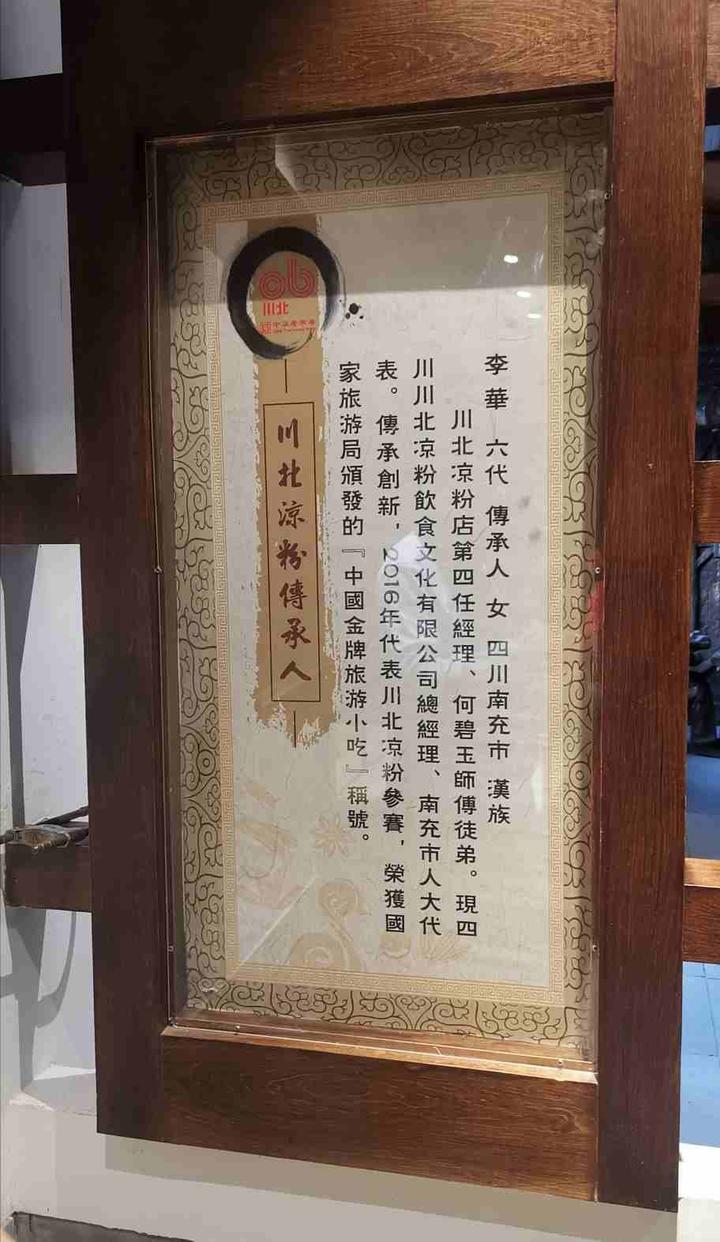 李華 六代 傳承人 女 四川南充市 漢族
川北凉粉店第四任經理、何碧玉師傅徒弟。現四
川川北凉粉飲食文化有限公司總經理、南充市人大代
表。傳承創新，2016年代表川北凉粉參賽，榮獲國
家旅游局頒發的『中國金牌旅游小吃』稱號。
川北涼粉傳承人
川北
中华老字号